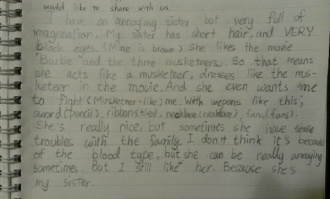 would like to share with us.
I have an annoying sister but very full of
imagination. My sister has short hair, and VERY
black eyes. (Mine is brown) She likes the movie
"Barbie and the three musketeers. So that means
she acts like a musketeer, dresses like the mus-
keteer in the movie. And she even wants me
to fight (Musketeer-like) me. With wepons like this;
sword (pencil), ribbon (tied), necklace (necklace), fans (fans).
She's really nice, but sometimes she have some
troubles with the family. I don't think it's because
of the blood type, but she can be really annoying
sometimes. But I still like her. Because she's
my sister.